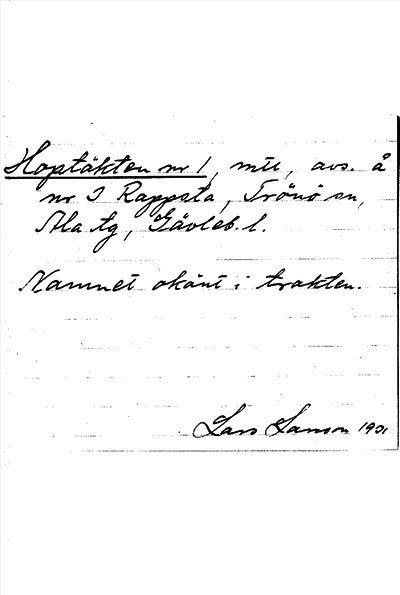 Hoptäkten nr 1, mtl, avs. å
nr 3 Rappsta, Trönö sn,
Ala tg, Gävleb. l.
Namnet okänt i trakten.
Lars Larson 1931